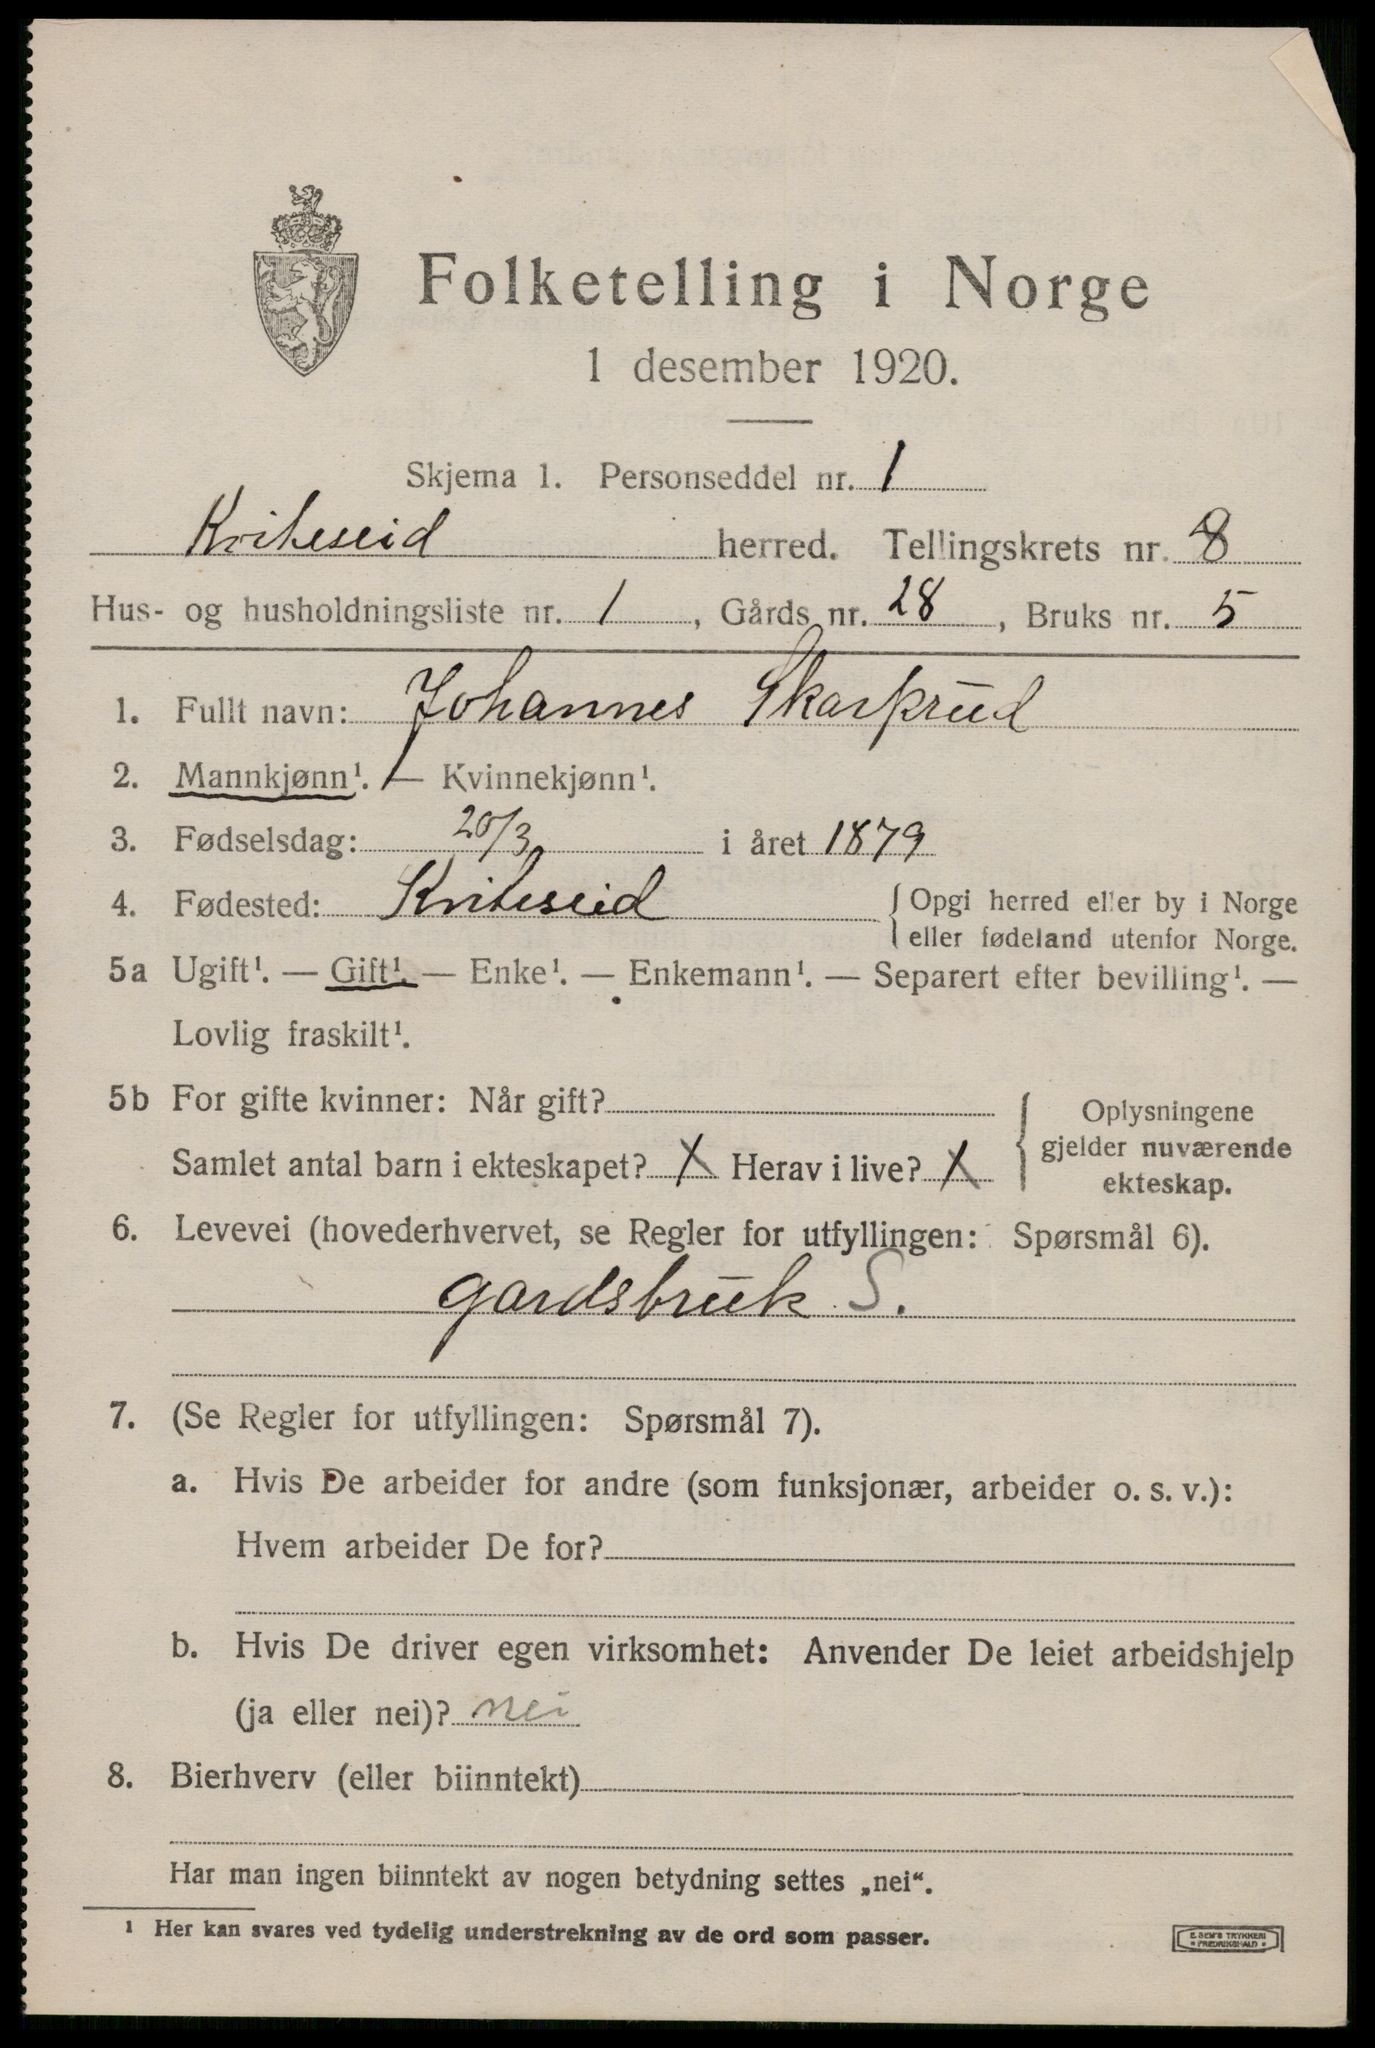 Folketelling i Norge
1 desember 1920.
Skjema 1. Personseddel nr. 1
Kviteseid herred. Tellingskrets nr. 8
Hus- og husholdningsliste nr. 1, Gårds nr. 28, Bruks nr. 5
1. Fullt navn: Johannes Skarprud
2. Mannkjønn¹. — Kvinnekjønn¹.
3. Fødselsdag: 20/3 i året 1879
4. Fødested: Kviteseid { Opgi herred eller by i Norge
eller fødeland utenfor Norge.
5a Ugift¹. — Gift¹. — Enke¹. — Enkemann¹. — Separert efter bevilling¹. —
Lovlig fraskilt¹.
5b For gifte kvinner: Når gift?
Samlet antal barn i ekteskapet? X Herav i live? X
{ Oplysningene
gjelder nuværende
ekteskap.
6. Levevei (hovederhvervet, se Regler for utfyllingen: Spørsmål 6).
gardsbruk S.
7. (Se Regler for utfyllingen: Spørsmål 7).
a. Hvis De arbeider for andre (som funksjonær, arbeider o. s. v.):
Hvem arbeider De for?
b. Hvis De driver egen virksomhet: Anvender De leiet arbeidshjelp
(ja eller nei)? nei
8. Bierhverv (eller biinntekt)
Har man ingen biinntekt av nogen betydning settes „nei“.
¹ Her kan svares ved tydelig understrekning av de ord som passer.
E. SEM'S TRYKKERI
• FREDRIKSHALD •